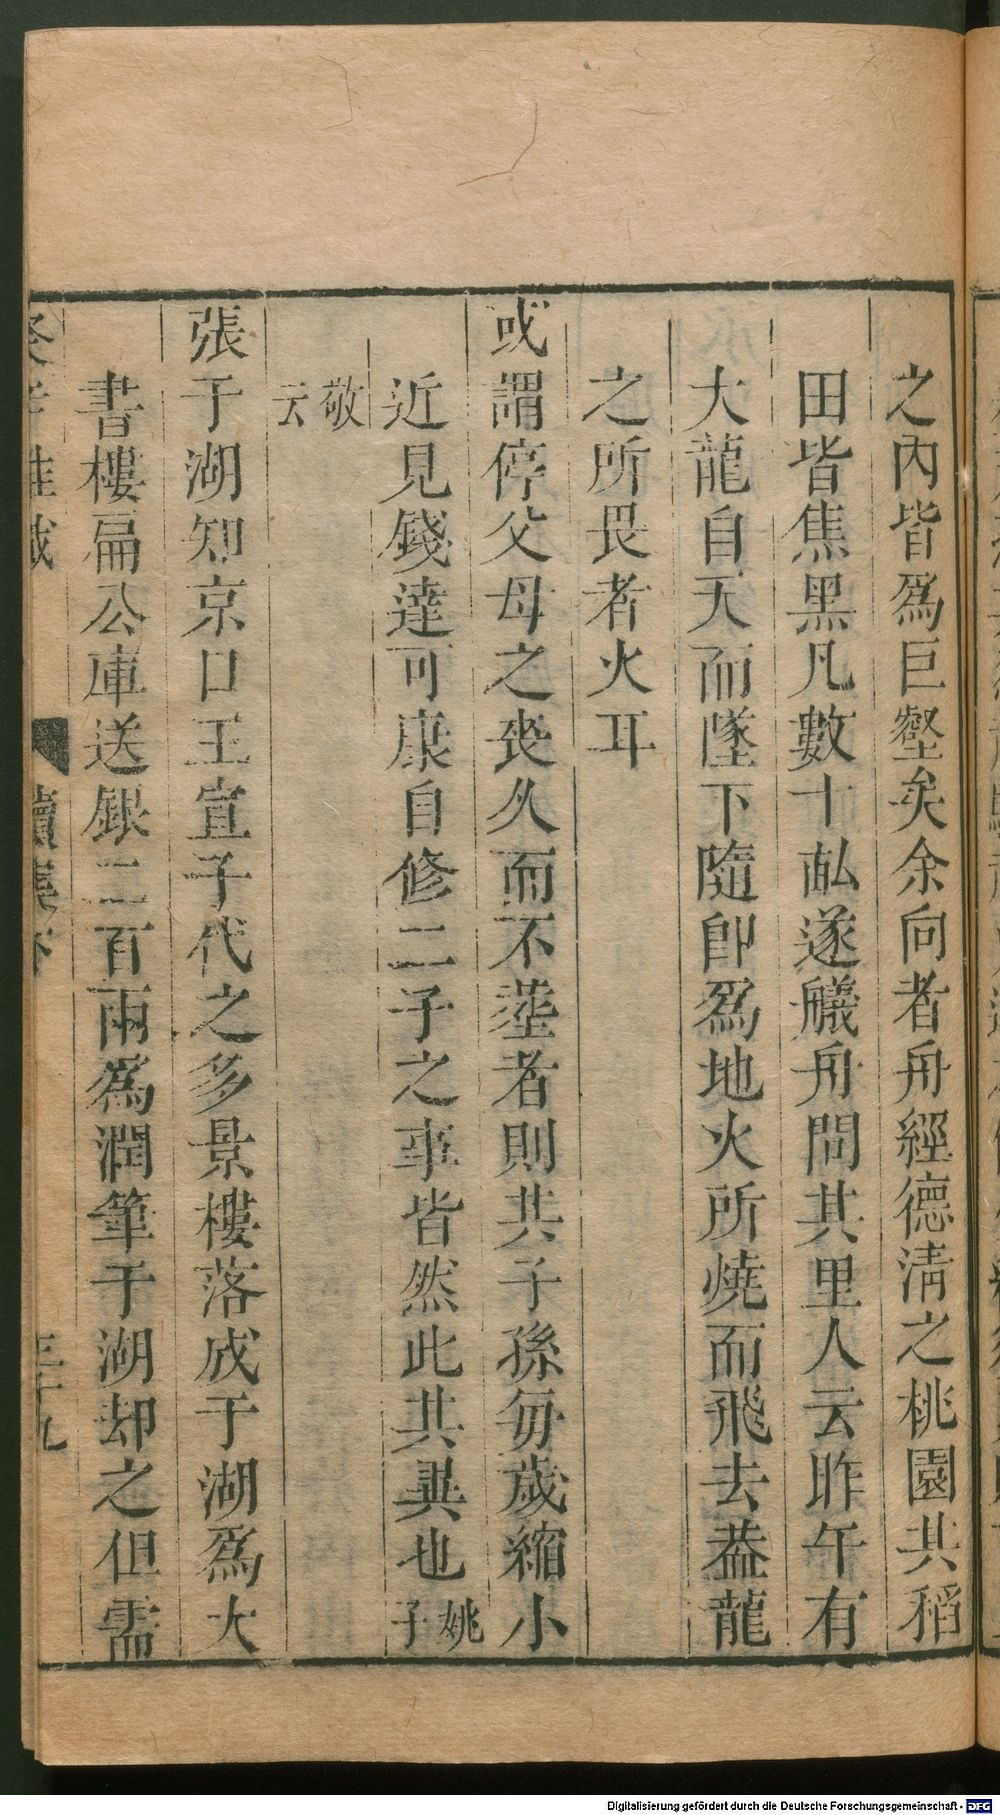 之內皆爲巨壑矣余向者舟經德淸之桃園共稻
田皆焦黑凡數十畝遂艤舟問其里人云昨午有
大龍自天而墜下隨卽爲地火所燒而飛去葢龍
之所畏者火耳
或謂停父母之喪久而不塟者則共子孫每歲縮小
近見錢達可康自修二子之事皆然此共異也姚子
敬云
張于湖知京口王宣子代之多景樓落成于湖爲大
書樓扁公庫送銀二百兩爲潤筆于湖却之但需
癸辛雜識
續集下
三十九
Digitalisierung gefördert durch die Deutsche Forschungsgemeinschaft - DFG